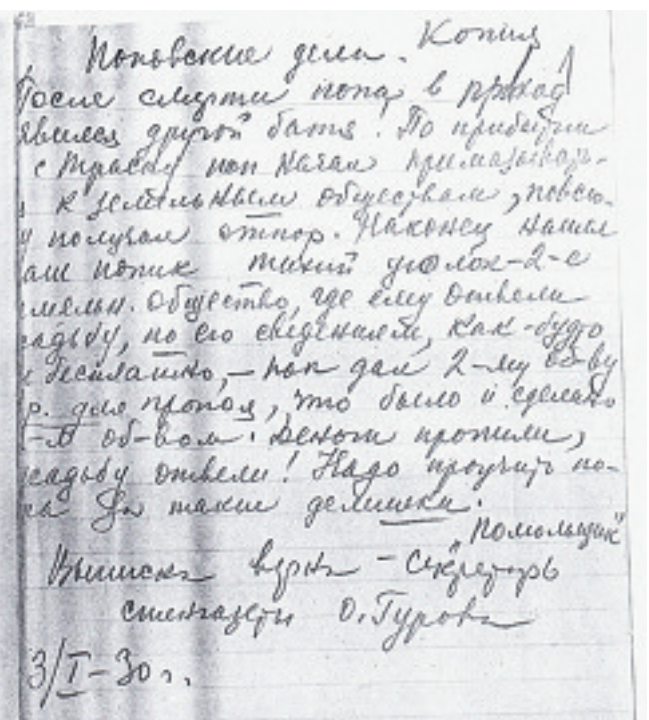 Копия
Поповские дела.
После смерти попа в приход
явился другой батя! По прибытии
поп начал примазывать-
к земельным обществам, повсю-
у получал отпор. Наконец нашел
аш попик тихий уголок-2-е
мельн. общество, где ему отвели
садьбу, по его сведениям, как-будто
бесплатно, – поп дал 2-му об-ву
р. для пропоя, что было и сделано
-м об-вом. Деньги пропили,
усадьбу отвели! Надо проучить по-
па за такие делишки.
„Помольщик"
Выписка верна – Секретарь
стенгазеты О. Гурова
3/I-30 г.